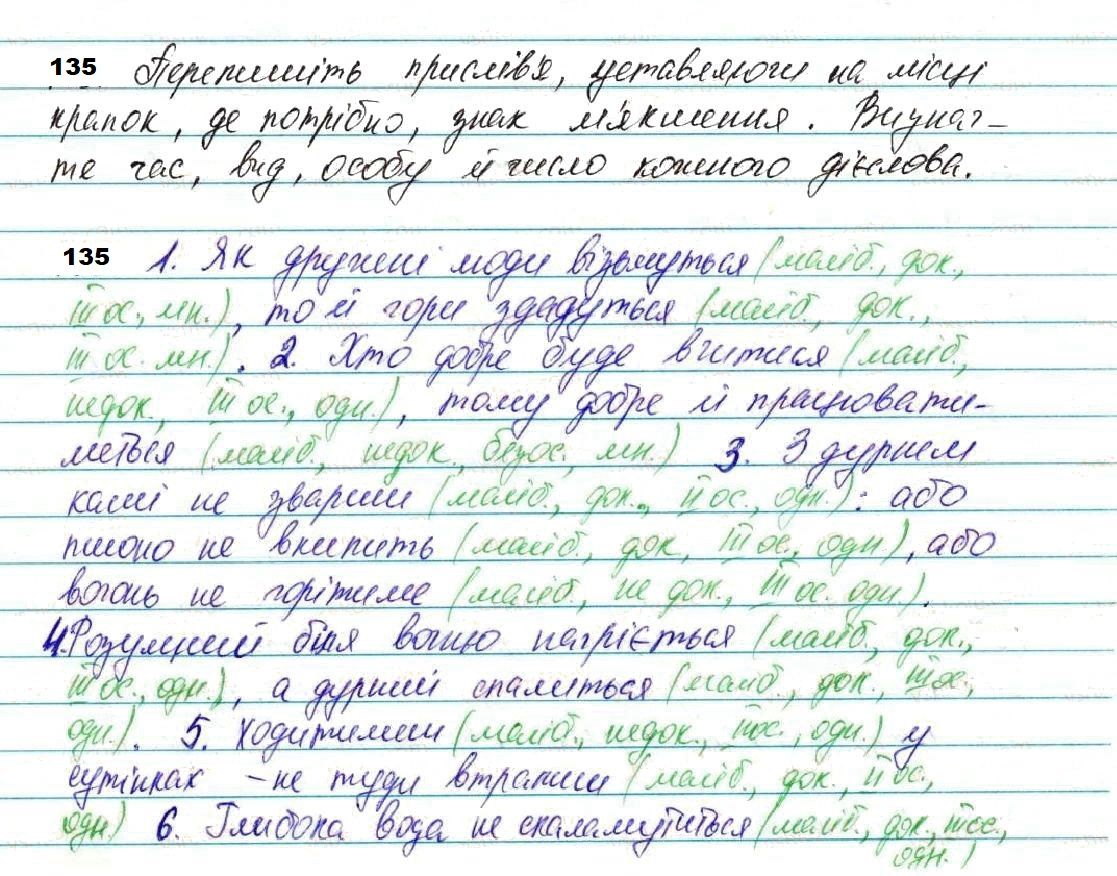 135 Перепишіть прислів'я, уставляючи на місці
крапок, де потрібно, знак м'якшення. Визнач-
те час, вид, особу й число кожного дієслова.
135 1. Як дружні люди візьмуться (майб., док.,
III ос., мн.), то й гори здадуться (майб., док.,
III ос. мн.). 2. Хто добре буде вчитися (майб.,
недок., III ос., одн.), тому добре й працювати-
меться (майб., недок., безос., мн.) 3. З дурнем
каші не звариш (майб., док., II ос., одн.): або
пшоно не вкипить (майб., док, III ос., одн), або
вогонь не горітиме (майб., не док., III ос. одн).
4. Розумний біля вогню нагріється (майб., док.,
III ос., одн.), а дурний спалиться (майб., док., III ос.,
одн.). 5. Ходитимеш (майб., недок., II ос., одн.) у
сутінках – не туди втрапиш (майб., док., II ос.,
одн) 6. Глибока вода не скаламутиться (майб., док., III ос.,
одн.)